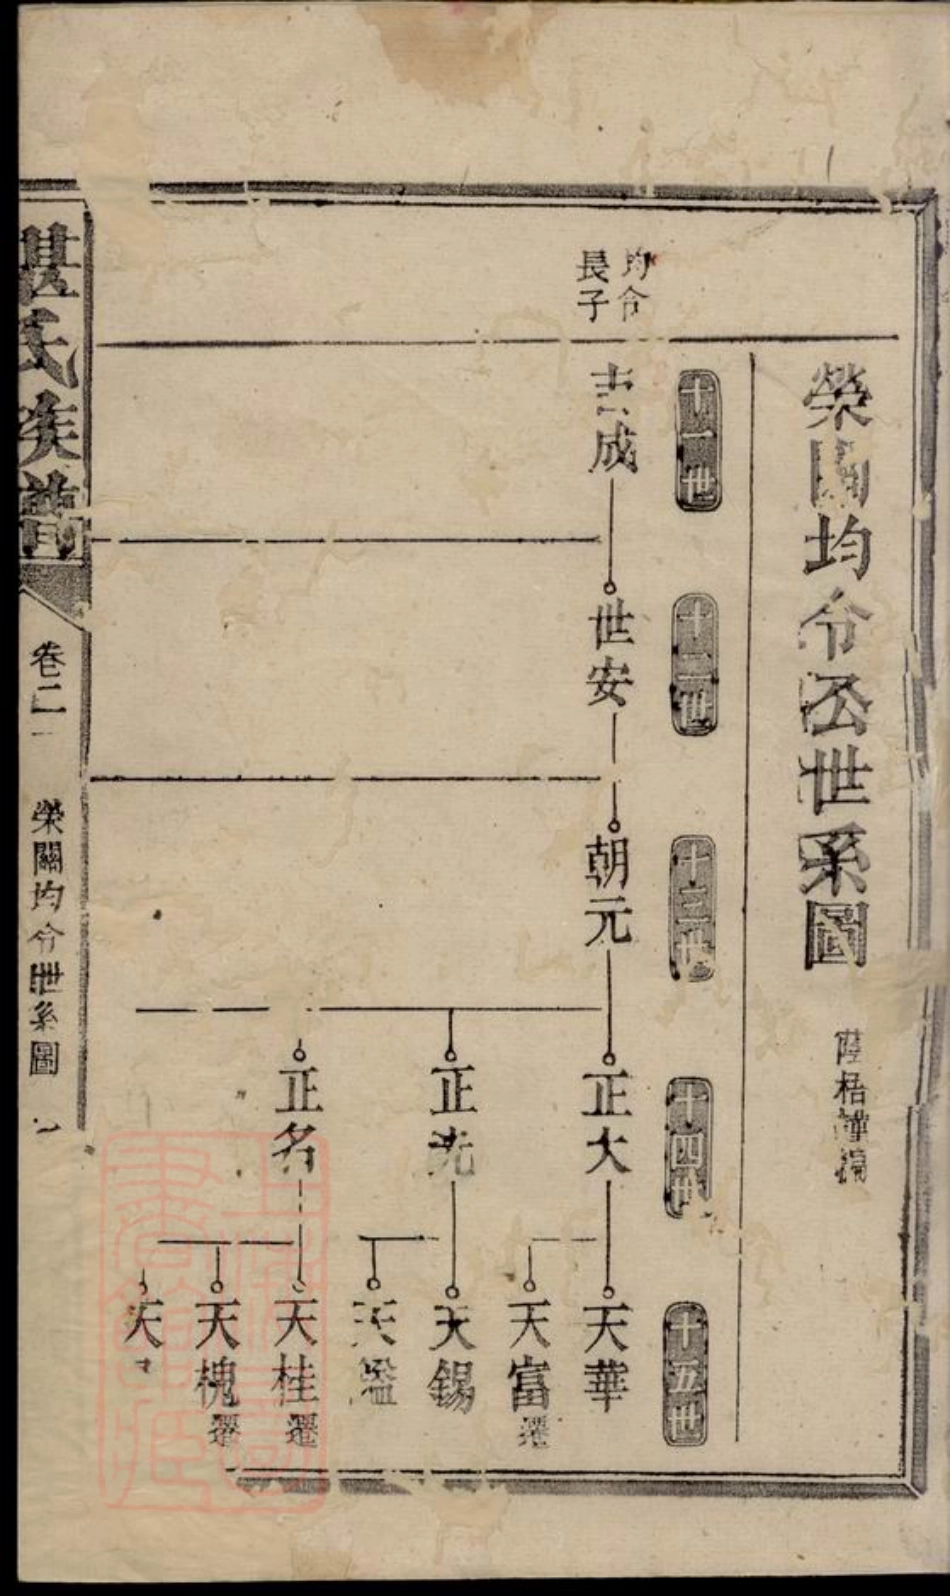 榮關均令公世系圖
十一世
十二世
十三世
十四世
十五世
均令
長子
成
世安
朝元
正大
天華
天富遷
正先
天錫
天鑑
正名
天桂遷
天槐遷
天
湛氏族譜
卷二
榮關均令世系圖